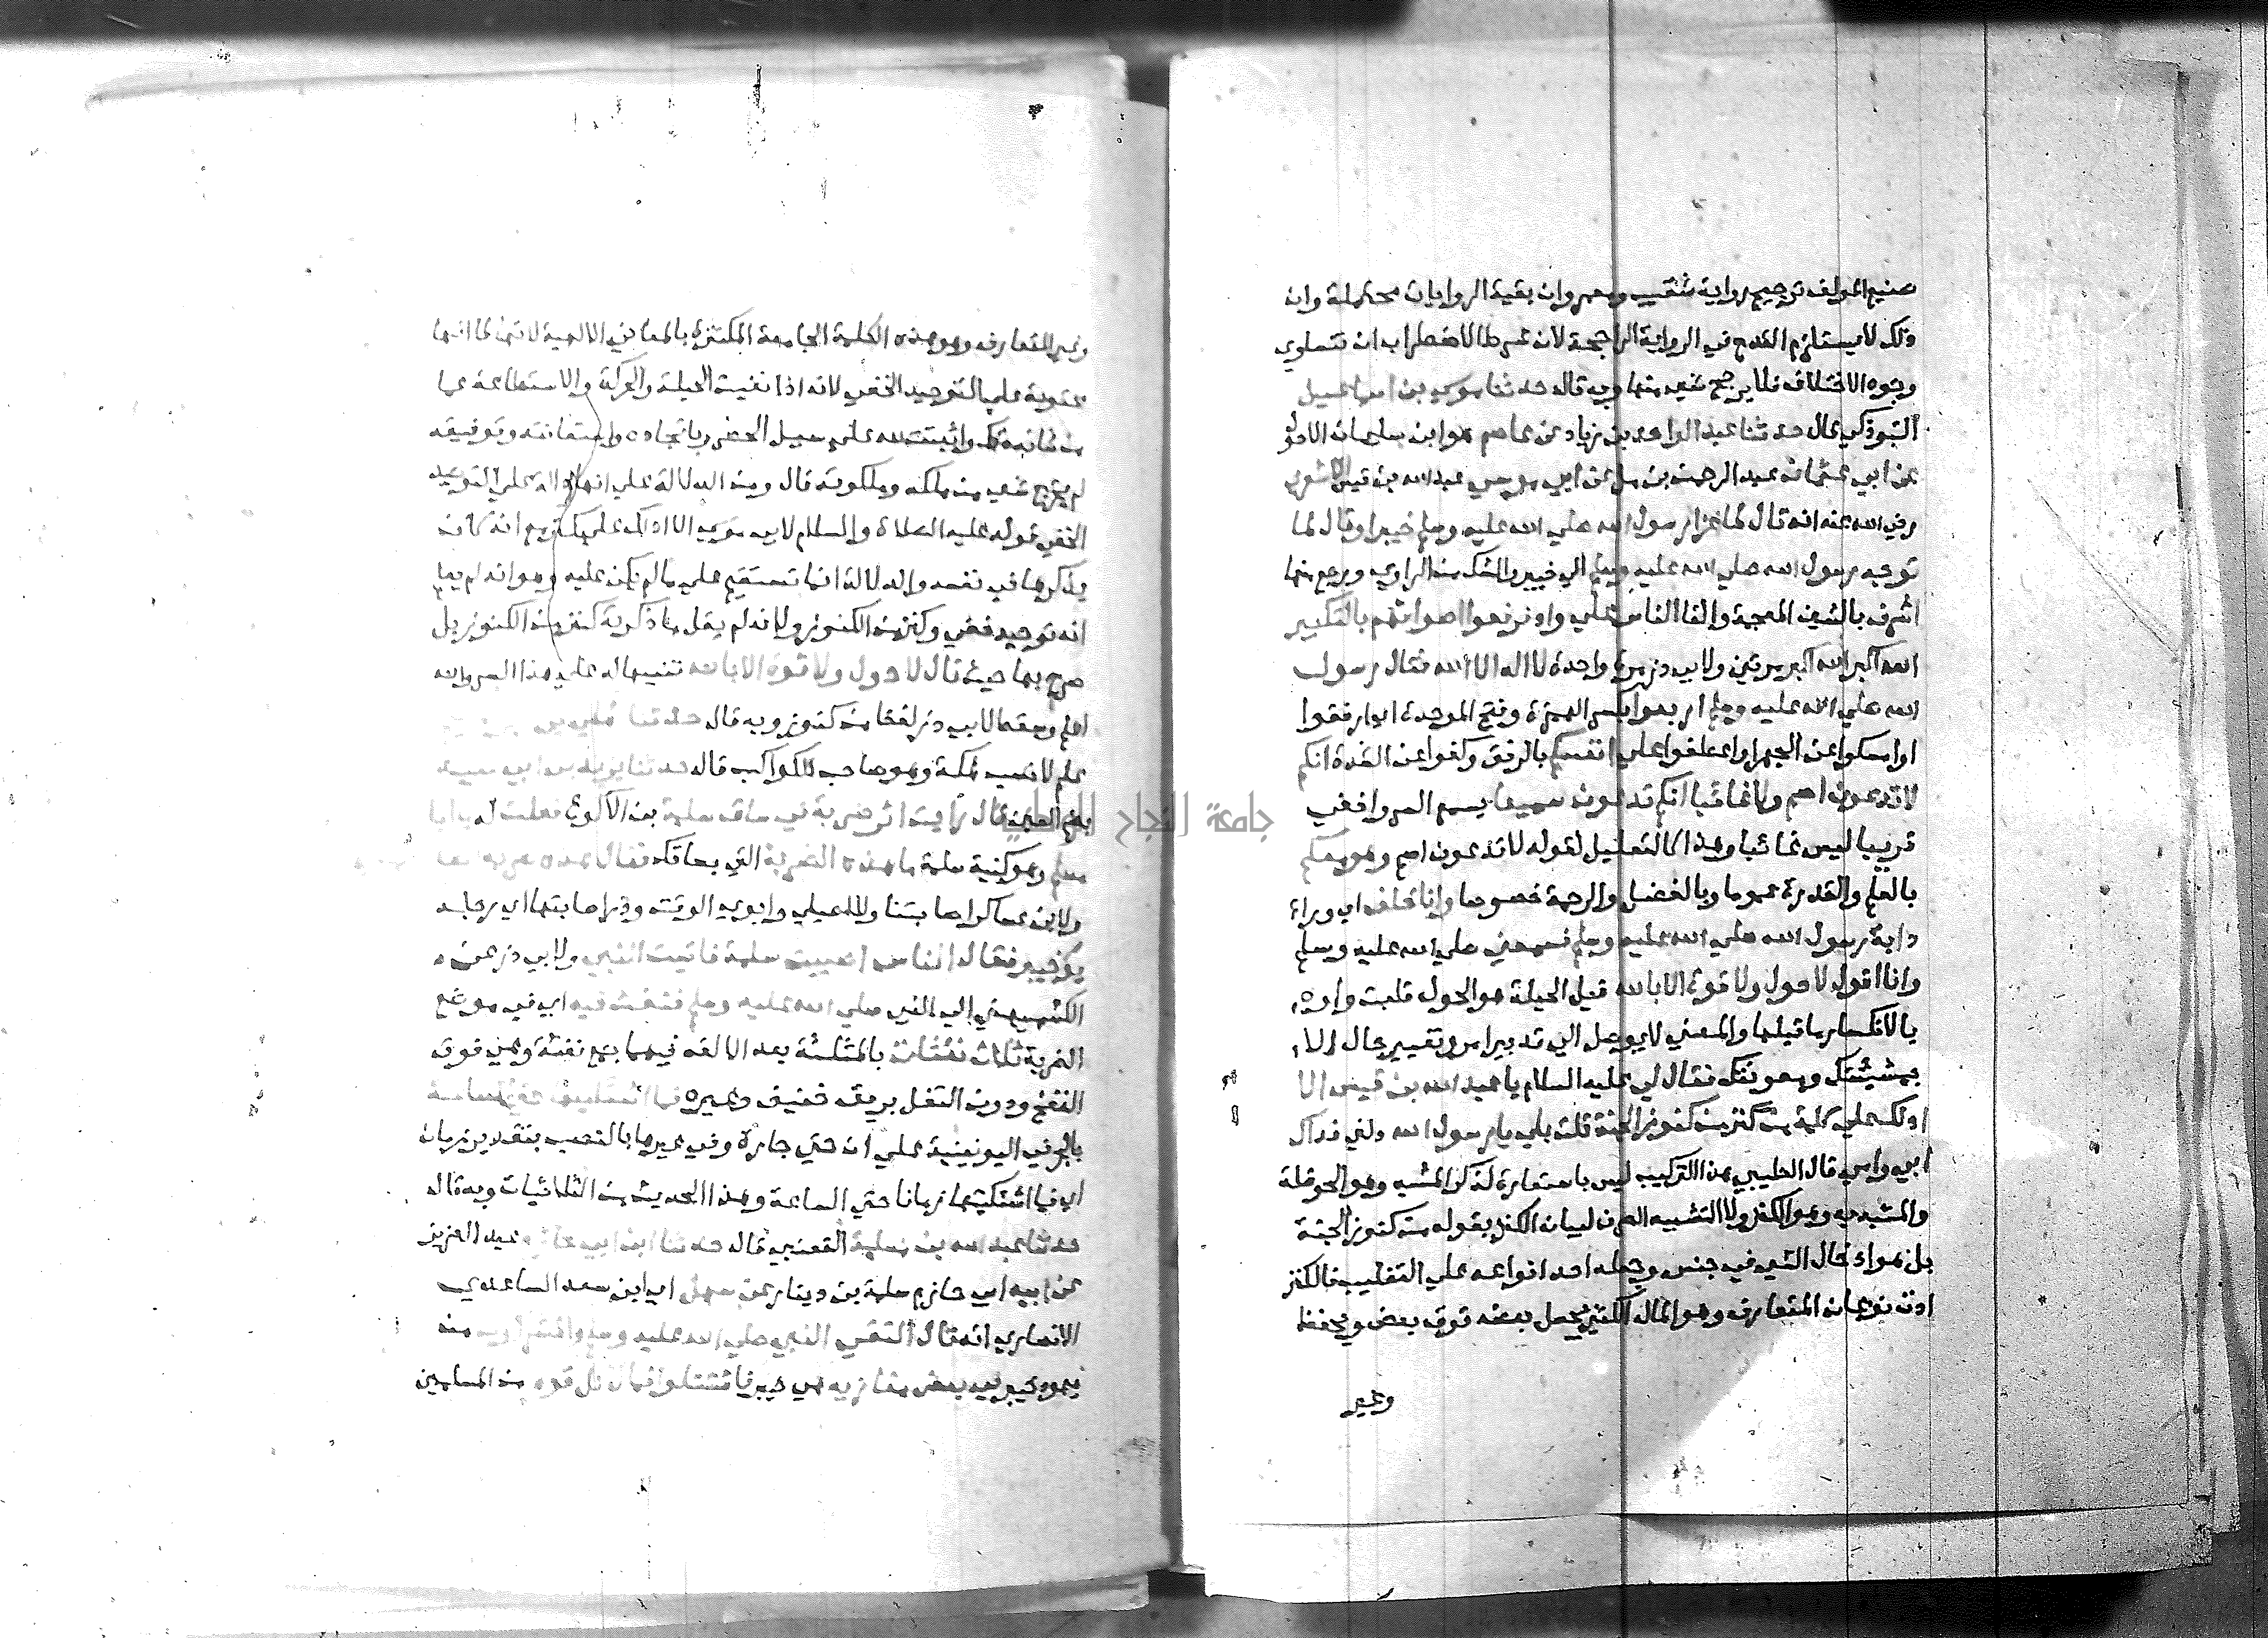 صنيع المولف ترجيح رواية شعيب ومعمر وان بقية الروايات محتملة وان
ذلك لا يستلزم القدح في الرواية الراجحة لان شرط الاضطراب ان تتساوي
وجوه الاختلاف فلا يرجح شي منها وبه قال حدثنا موسي بن اسماعيل
التبوذكي قال حدثنا عبد الواحد بن زياد عن عاصم هو ابن سليمان الاحول
عن ابي عثمان عبد الرحمن بن مل عن ابي موسي عبد الله بن قيس الاشعري
رضي الله عنه انه قال لما غزا رسول الله صلي الله عليه وسلم خيبر او قال لما
توجه رسول الله صلي الله عليه وسلم الي خيبر بالشك من الراوي ورجع منها
اشرف بالشين المعجمة والفا الناس علي واد فرفعوا اصواتهم بالتكبير
الله اكبر الله اكبر مرتين ولابي ذر مرة واحدة لا اله الا الله فقال رسول
الله صلي الله عليه وسلم اربعوا بكسر الهمزة وفتح الموحدة اي ارفقوا
او امسكوا عن الجهر او اعطفوا علي انفسكم بالرفق وكفوا عن الشدة انكم
لا تدعون اصم ولا غائبا انكم تدعون سميعا يسمع السر واخفي
قريبا ليس غائبا وهذا كالتعليل لقوله لا تدعون اصم وهو معكم
بالعلم والقدرة عموما وبالفضل والرحمة خصوصا وانا خلف اي وراء
دابة رسول الله صلي الله عليه وسلم فسمعني صلي الله عليه وسلم
وانا اقول لا حول ولا قوة الا بالله قيل الحيلة هو الحول قلبت واوه
يا لانكسار ما قبلها والمعني لا يوصل الي تدبير امر وتغيير حال الا
بمشيئتك ومعونتك فقال لي عليه السلام يا عبد الله بن قيس الا
ادلك علي كلمة من كنز من كنوز الجنة قلت بلي يا رسول الله دلني فداك
ابي وامي قال الطيبي هذا التركيب ليس باستعارة لذكر المشبه وهو الحوقلة
والمشبه به وهو الكنز ولا التشبيه الصرف لبيان الكنز بقوله من كنوز الجنة
بل هو ادخال الشي في جنس وجعله احد انواعه علي التغليب فالكنز
اذن نوعان المتعارف وهو المال الكثير يجعل بعضه فوق بعض ويحفظ
وغير
وغير المتعارف وهو هذه الكلمة الجامعة المكتنزة بالمعاني الالهية لانها لما انها
محتوية علي التوحيد الخفي لانه اذا نفيت الحيلة والحركة والاستطاعة عما
من شانه ذلك واثبتت لله علي سبيل الحصر بايجاده واستعانته وتوفيقه
لم يخرج شي من ملكه وملكوته قال ومن الدلالة علي انها دالة علي التوحيد
الخفي قوله عليه الصلاة والسلام لابي موسي الا ادلك علي كلمة مع انه كان
يذكرها في نفسه والدلالة انما تستقيم علي ما لم يكن عليه وهو انه لم يعلم
انه توحيد خفي وكنز من الكنوز ولانه لم يقل ما ذكرته كنز من الكنوز بل
صرح بها حيث قال لا حول ولا قوة الا بالله تنبيها له علي هذا السر والله
اعلم وسقط لابي ذر لفظ من كنوز وبه قال حدثنا
علم لا نسب لمكة وهو صاحب الكواكب قال حدثنا يزيد بن ابي عبيد
بضم العين قال رايت اثر ضربة في ساق سلمة بن الاكوع فقلت له يا ابا
مسلم وهو كنية سلمة ما هذه الضربة التي بساقك فقال هذه ضربة
ولابن عساكر اصابتنا وللاصيلي وابوي الوقت وذر اصابتها اي رجله
يوم خيبر فقال الناس اصيب سلمة فاتيت النبي ولابي ذر عن
الكشميهني الي النبي صلي الله عليه وسلم فنفث فيه اي في موضع
الضربة ثلاث نفثات بالمثلثة بعد الالف فيهما جمع نفثة وهي فوق
النفخ ودون التفل بريق خفيف وغيره فما اشتكيتها حتي الساعة
بالجر في اليونينية علي ان حتي جارة وفي غيرها بالنصب بتقدير زمان
اي فما اشتكيتها زمانا حتي الساعة وهذا الحديث من الثلاثيات وبه قال
حدثنا عبد الله بن مسلمة القعنبي قال حدثنا ابن ابي حازم عبد العزيز
عن ابيه ابي حازم سلمة بن دينار عن سهل اي ابن سعد الساعدي
الانصاري انه قال التقي النبي صلي الله عليه وسلم والمشركون من
يهود خيبر في بعض مغازيه هي خيبر فاقتتلوا فمال كل قوم من المسلمين
جامعة النجاح الوطنية